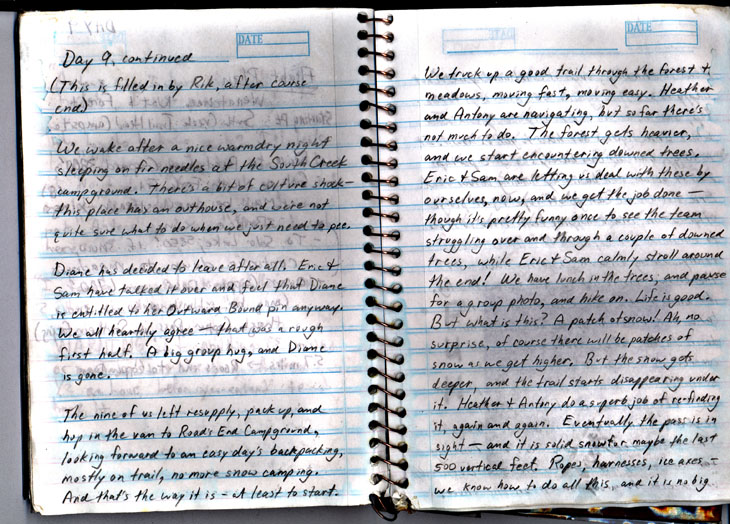 DATE
Day 9, continued
(This is filled in by Rik, after course
end)
We wake after a nice warm dry night
sleeping on fir needles at the South Creek
campground. There's a bit of culture shock -
this place has an outhouse, and we're not
quite sure what to do when we just need to pee.
Diane has decided to leave after all. Eric +
Sam have talked it over and feel that Diane
is entitled to her Outward Bound pin anyway.
We all heartily agree - that was a rough
first half. A big group hug, and Diane
is gone.
The nine of us left resupply, pack up, and
hop in the van to Road's End Campground,
looking forward to an easy day's backpacking,
mostly on trail, no more snow camping.
And that's the way it is - at least to start.
DATE
We truck up a good trail through the forest +
meadows, moving fast, moving easy. Heather
and Antony are navigating, but so far there's
not much to do. The forest gets heavier,
and we start encountering downed trees.
Eric + Sam are letting us deal with these by
ourselves, now, and we get the job done -
though it's pretty funny once to see the team
struggling over and through a couple of downed
trees, while Eric + Sam calmly stroll around
the end! We have lunch in the trees, and pause
for a group photo, and hike on. Life is good.
But what is this? A patch of snow! Ah, no
surprise, of course there will be patches of
snow as we get higher. But the snow gets
deeper, and the trail starts disappearing under
it. Heather + Antony do a superb job of re-finding
it, again and again. Eventually the pass is in
sight - and it is solid snow for maybe the last
500 vertical feet. Ropes, harnesses, ice axes -
we know how to do all this, and it is no big